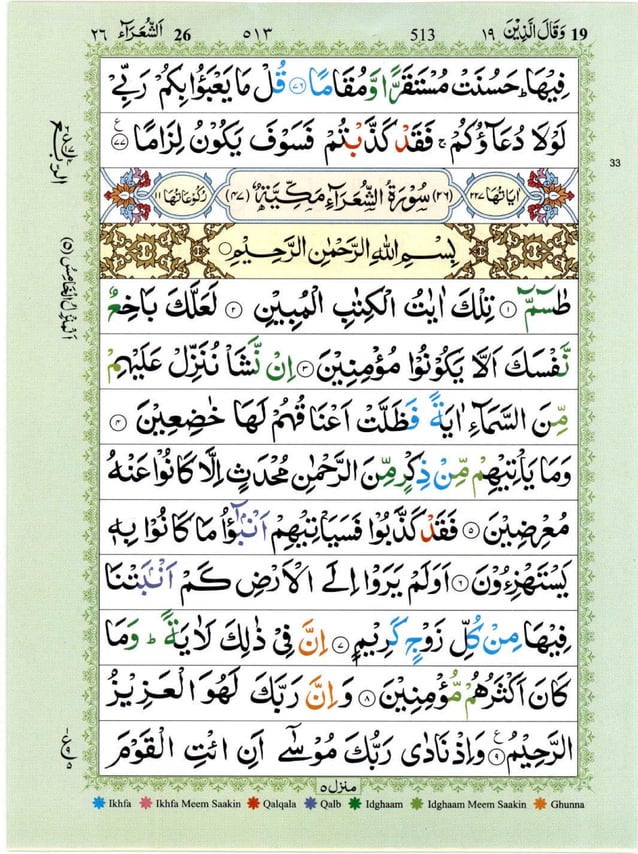 ١٩ وَقَالَ الَّذِيْنَ 19 513 ٥١٣ 26 اَلشُّعَرَآء ٢٦
فِيْهَا ؕ حَسُنَتْ مُسْتَقَرًّا وَّمُقَامًا ﴿٧٦﴾ قُلْ مَا يَعْبَؤُا بِكُمْ رَبِّيْ
لَوْلَا دُعَآؤُكُمْ ۚ فَقَدْ كَذَّبْتُمْ فَسَوْفَ يَكُوْنُ لِزَامًا ﴿٧٧﴾
33
اٰيَاتُهَا ٢٢٧ (٢٦) سُوْرَةُ الشُّعَرَآءِ مَكِّيَّةٌ (٤٧) رُكُوْعَاتُهَا ١١
بِسْمِ اللّٰهِ الرَّحْمٰنِ الرَّحِيْمِ
طٰسٓمّٓ ﴿١﴾ تِلْكَ اٰيٰتُ الْكِتٰبِ الْمُبِيْنِ ﴿٢﴾ لَعَلَّكَ بَاخِعٌ
نَّفْسَكَ اَلَّا يَكُوْنُوْا مُؤْمِنِيْنَ ﴿٣﴾ اِنْ نَّشَاْ نُنَزِّلْ عَلَيْهِمْ
مِّنَ السَّمَآءِ اٰيَةً فَظَلَّتْ اَعْنَاقُهُمْ لَهَا خٰضِعِيْنَ ﴿٤﴾
وَمَا يَاْتِيْهِمْ مِّنْ ذِكْرٍ مِّنَ الرَّحْمٰنِ مُحْدَثٍ اِلَّا كَانُوْا عَنْهُ
مُعْرِضِيْنَ ﴿٥﴾ فَقَدْ كَذَّبُوْا فَسَيَاْتِيْهِمْ اَنْۢبٰٓؤُا مَا كَانُوْا بِهٖ
يَسْتَهْزِءُوْنَ ﴿٦﴾ اَوَلَمْ يَرَوْا اِلَى الْاَرْضِ كَمْ اَنْۢبَتْنَا
فِيْهَا مِنْ كُلِّ زَوْجٍ كَرِيْمٍ ﴿٧﴾ اِنَّ فِيْ ذٰلِكَ لَاٰيَةً ؕ وَمَا
كَانَ اَكْثَرُهُمْ مُّؤْمِنِيْنَ ﴿٨﴾ وَاِنَّ رَبَّكَ لَهُوَ الْعَزِيْزُ
الرَّحِيْمُ ﴿٩﴾ وَاِذْ نَادٰى رَبُّكَ مُوْسٰٓى اَنِ ائْتِ الْقَوْمَ
منزل ٥
Ikhfa Ikhfa Meem Saakin Qalqala Qalb Idghaam Idghaam Meem Saakin Ghunna
اَلْمَنْزِلُ الْخَامِسُ (٥)